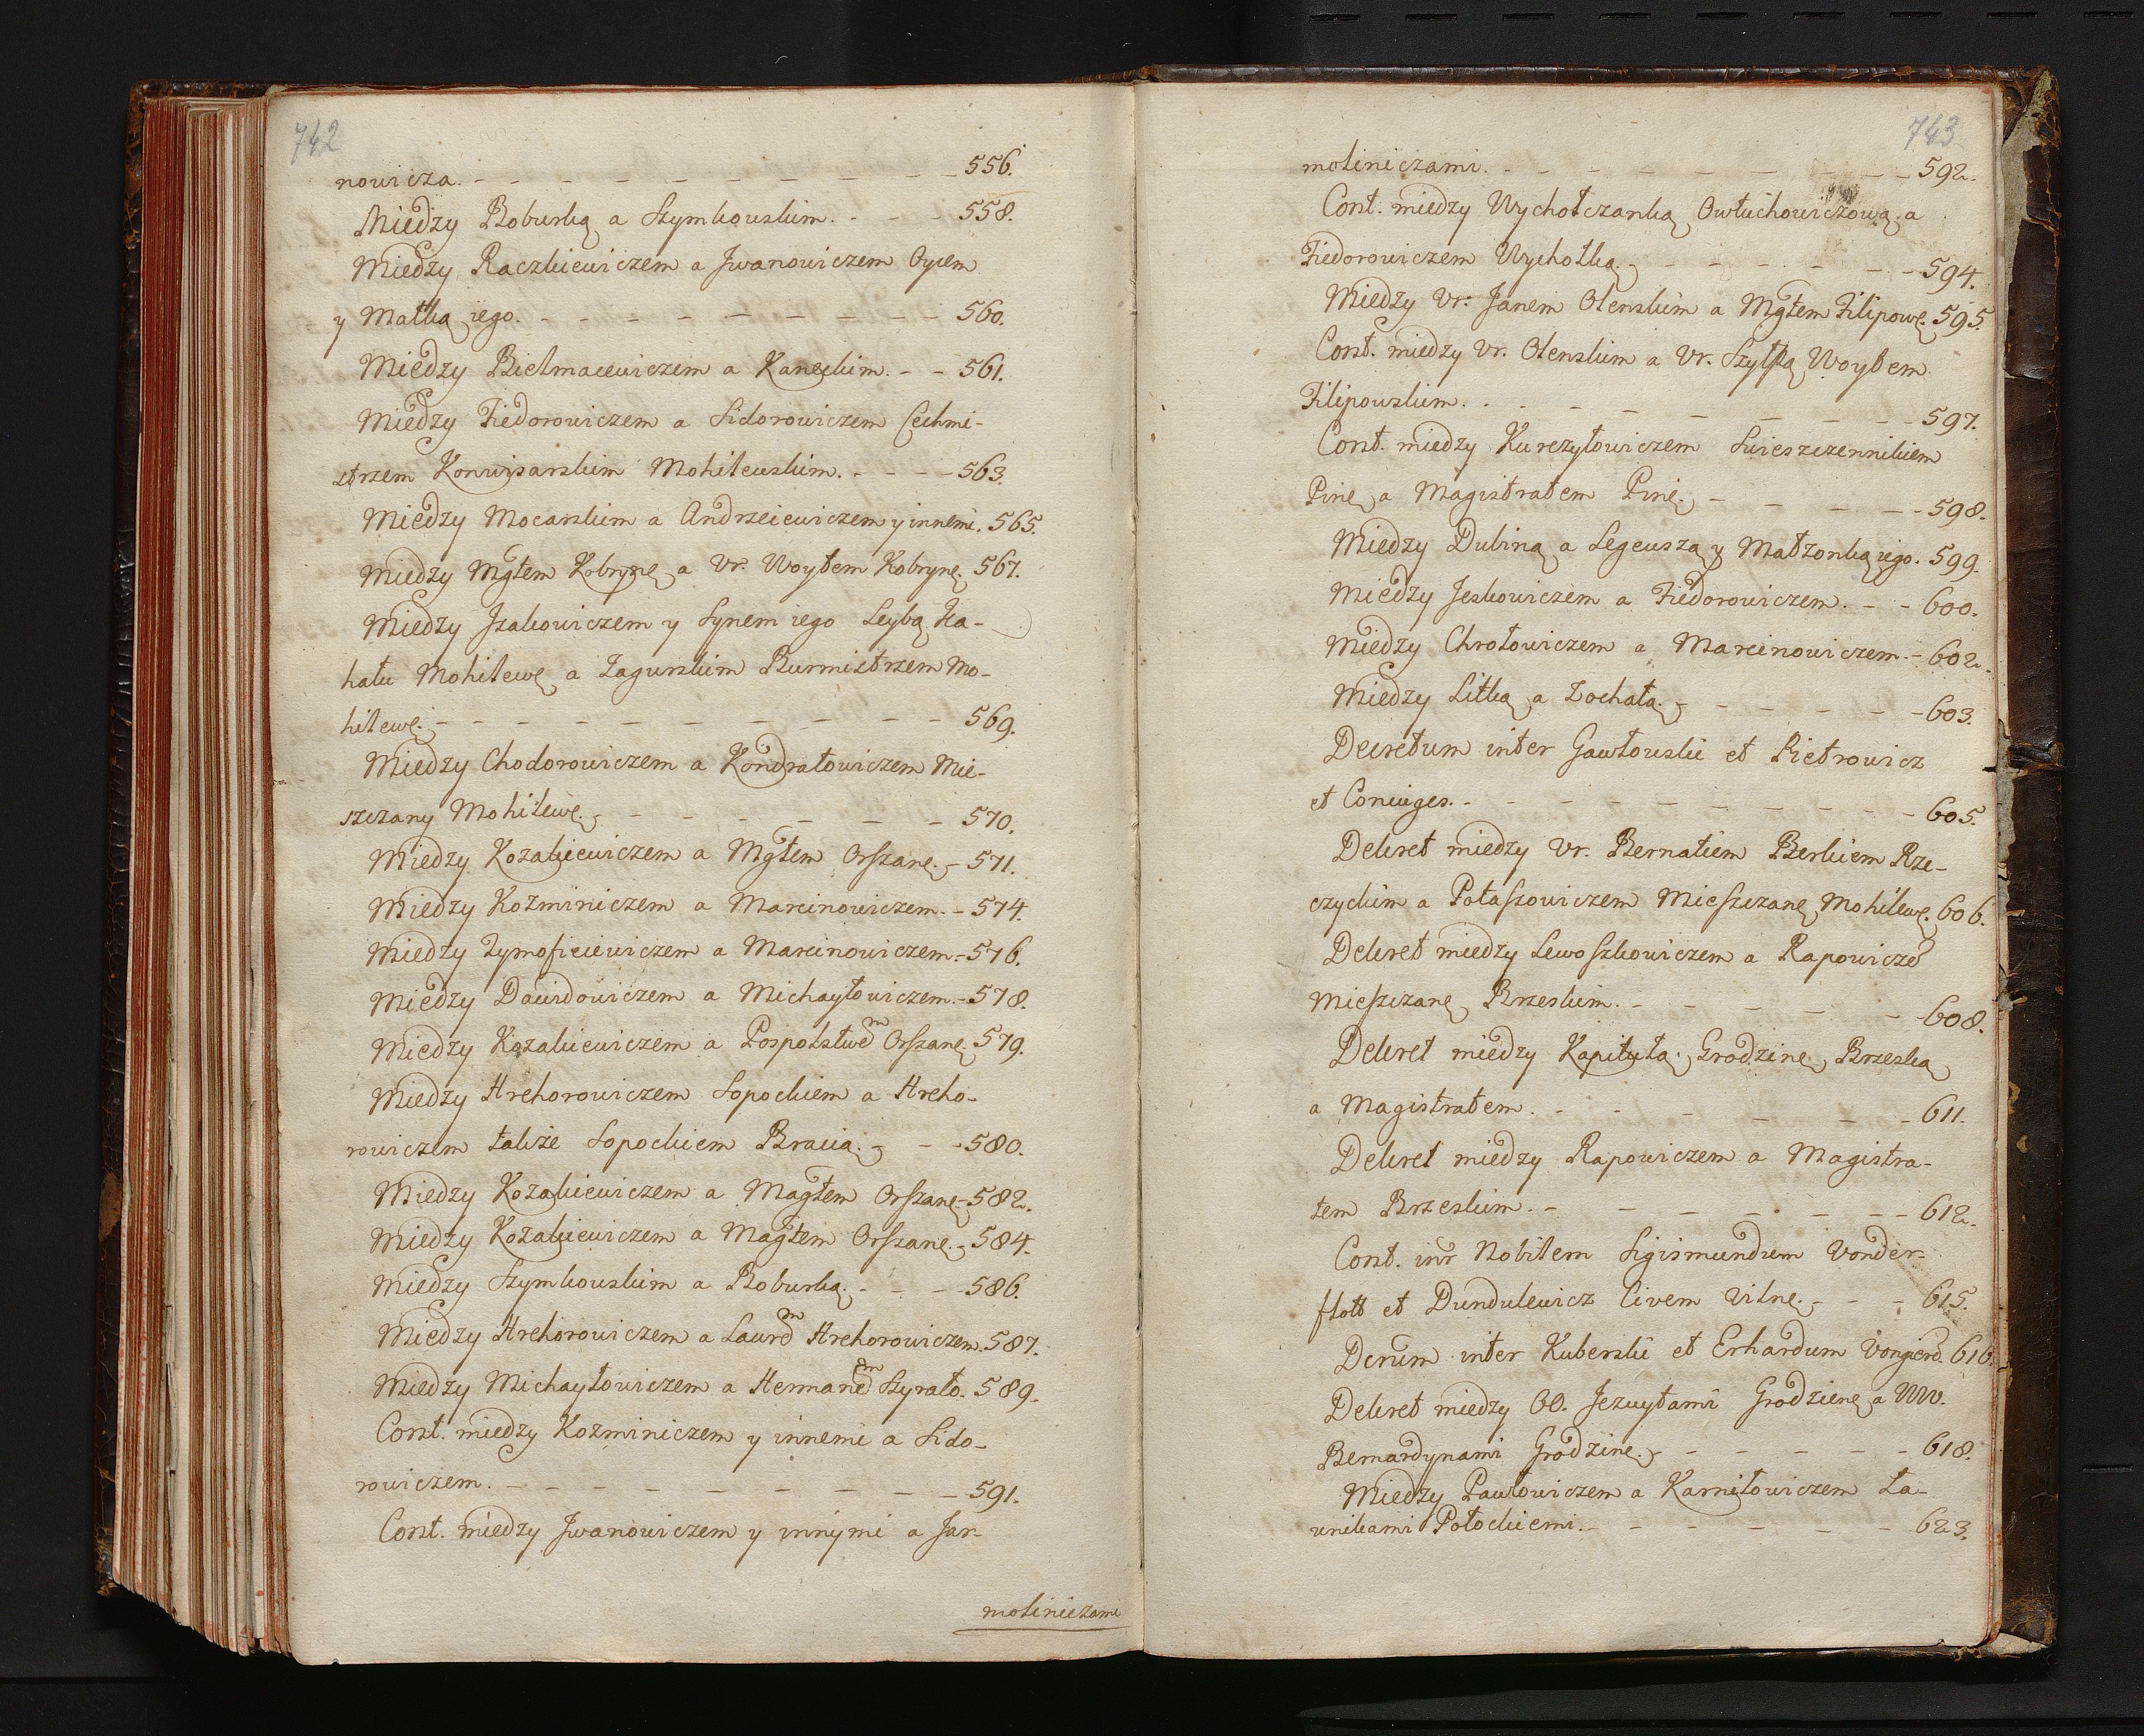 742
nowicza. - - - - - - - - - 556.
Między Boburką a Szymkowskim. - - - 558.
Między Raczkiewiczem a Jwanowiczem Oycem
y Matką iego. - - - - - - - - 560.
Między Bielmacewiczem a Kaneckim. - - 561.
Między Fiedorowiczem a Sidorowiczem Cechmi-
strzem Konwisarskim Mohilewskim. - - - - 563.
Między Mocarskim a Andrzeiewiczem y innemi. 565.
Między Mgłem Kobrynę a Ur. Woytem Kobrynę. 567.
Między Jzakowiczem y Synem iego Leybą Ka-
hału Mohilewę a Zagurskim Burmistrzem Mo-
hilewę. - - - - - - - - - - 569.
Między Chodorowiczem a Kondratowiczem Mie-
szczany Mohilewę. - - - - - - - 570.
Między Kozakiewiczem a Mgtem Orszanę. - 571.
Między Kozminiczem a Marcinowiczem. - 574.
Między Tymoficiewiczem a Marcinowiczem. - 576.
Między Dawidowiczem a Michayłowiczem. - 578.
Między Kozakiewiczem a Pospolstwem Orszanę. 579.
Między Hrehorowiczem Sopockiem a Hreho-
rowiczem także Sopockiem Bracią. - - - 580.
Między Kozakiewiczem a Magtem Orszanę - 582.
Między Kozakiewiczem a Magtem Orszanę. - 584.
Między Szymkowskim a Boburką. - - - 586.
Między Hrehorowiczem a Laurem Hrehorowiczem. 587.
Między Michayłowiczem a Hermanem Szyrało. 589.
Cont. między Kozminiczem y innemi a Sido-
rowiczem. - - - - - - - - - 591.
Cont. między Jwanowiczem y innymi a Jar-
moliniczami
743
moliniczami. - - - - - - - - - 592.
Cont. między Wychotczanką Owłuchowiczową a
Fiedorowiczem Wychotką. - - - - - - - 594.
Między Ur: Janem Olenskim a Mgtem Filipowę. 595.
Cont. między Ur. Olenskim a Ur. Szylpą Woytem
Filipowskim. - - - - - - - - 597.
Cont. między Kurczyłowiczem Swieszczennikiem
Pinę a Magistratem Pinę. - - - - - 598.
Między Dubiną a Legeuszą y Małżonką iego. 599.
Między Jeskowiczem a Fiedorowiczem. - - 600.
Między Chrołowiczem a Marcinowiczem. - 602.
Między Litką a Zochałą. - - - - - - 603.
Decretum inter Gawłowskie et Pietrowicz
et Coniuges. - - - - - - - - - - 605.
Dekret między Ur. Bernatiem Berkiem Rze-
czyckim a Potaszowiczem Mieszczanę Mohilewę. 606.
Dekret między Lewoszkowiczem a Rapowiczē
Mieszczanę Brzeskim. - - - - - - - 608.
Dekret między Kapitułą Grodzinę, Brzeską
a Magistratem. - - - - - - - 611.
Dekret między Rapowiczem a Magistra-
tem Brzeskim. - - - - - - - 612.
Cont. inr Nobilem Sigismundum Vonder-
flott et Dundulewicz Civem Vilnę. - - - 615.
Dcrum inter Kuberskie et Erhardum Vongierd. 616.
Dekret między OO. Jezuytami Grodzienę a WW.
Bernardynami Grodzinę. - - - - - - 618.
Między Pawłowiczem a Karniłowiczem Ła-
wnikami Połockiemi. - - - - - - 623.